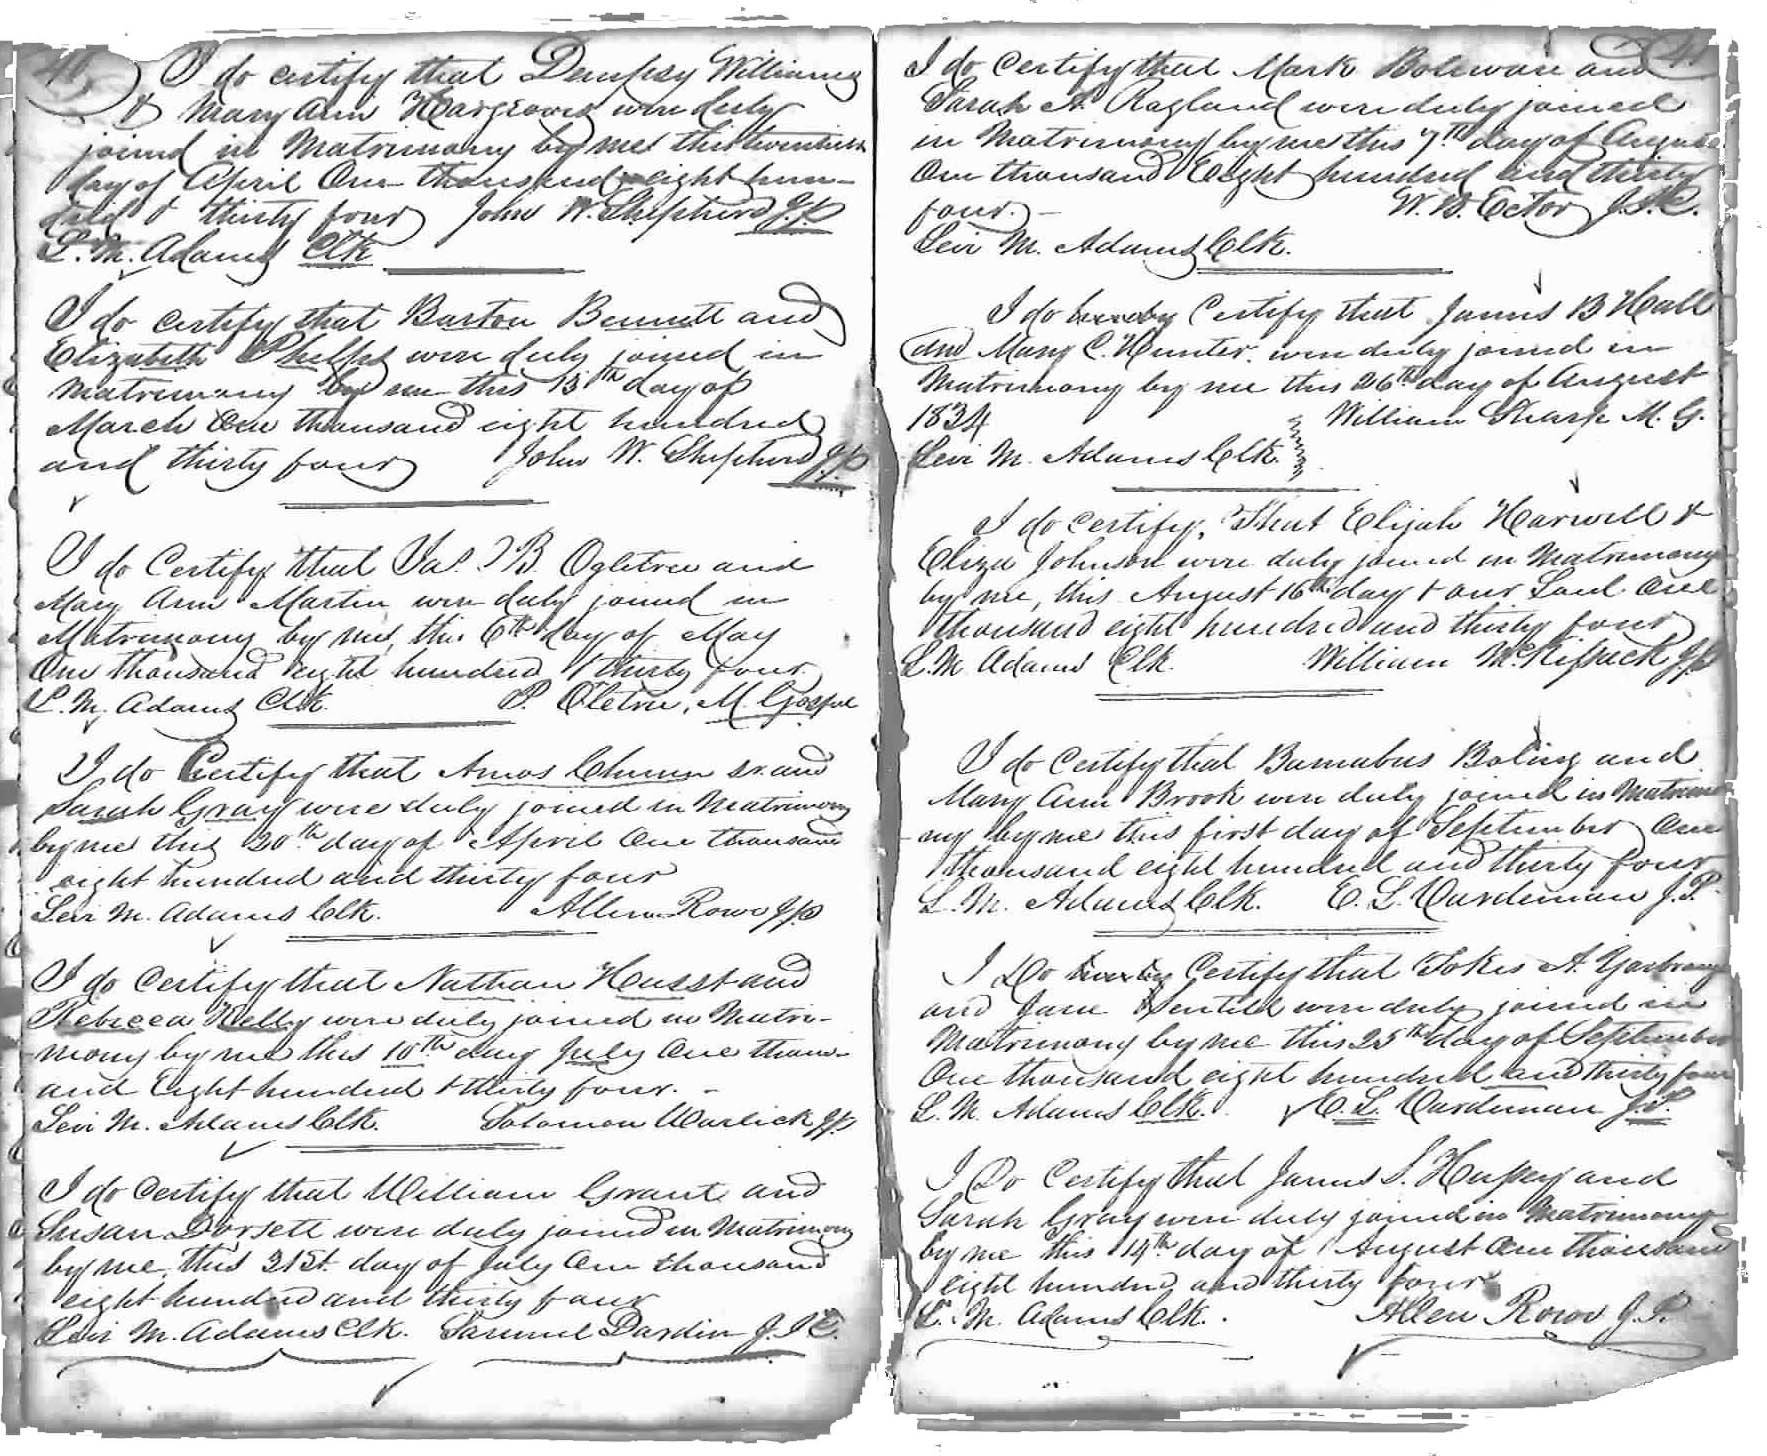 40
I do certify that Dempsy Williams
& Mary Ann Hargroves were duly
joined in Matrimony by me this twentieth
day of April One thousand eight hun-
dred & thirty four John W. Shepherd J.P.
L. M. Adams Clk
I do certify that Barton Bennett and
Elizabeth Phelps were duly joined in
matrimony by me this 13th day of
March One thousand eight hundred
and thirty four John W. Shepherd J.P.
I do Certify that Jas. B. Ogletree and
Mary Ann Martin were duly joined in
Matrimony by me, this 6th day of May
One thousand eight hundred & thirty four.
L. M. Adams Clk P. Ogletree, M. Gospel
I do Certify that Amos Chunn Sr. and
Sarah Gray were duly joined in Matrimony
by me this 20th day of April One thousand
eight hundred and thirty four
Levi M. Adams Clk. Allen Rowe J.P.
I do Certify that Nathan Husst and
Rebecca Kelly were duly joined in Matri-
mony by me this 10th day July One thou-
and Eight hundred & thirty four. -
Levi M. Adams Clk. Solomon Warlick J.P.
I do Certify that William Grant and
Susan Dorsett were duly joined in Matrimony
by me, this 31st. day of July One thousand
eight hundred and thirty four
Levi M. Adams Clk. Samuel Dardin J. I C.
41
I do Certify that Mark Boleware and
Sarah A. Ragland were duly joined
in Matrimony by me this 7th day of August
One thousand Eight hundred and thirty
four. - W. B. Ector J.I.C.
Levi M. Adams Clk.
I do hereby Certify that James B Hall
and Mary C. Hunter. were duly joined in
Matrimony by me this 26th day of August
1834 William Sharp M. G.
Levi M. Adams Clk.
I do Certify, That Elijah Harwell &
Eliza Johnson were duly joined in Matrimony
by me, this August 16th day & our Lord One
thousand eight hundred and thirty four
L. M. Adams Clk. William McKissack J.P.
I do Certify that Barnabus Boling and
Mary Ann Brook were duly joined in Matrimo
ny by me this first day of September One
thousand eight hundred and thirty four
L. M. Adams Clk. E. L. Vardeman J.P.
I Do hereby Certify that Tokes A. Yarbrough
and Jane Sentell were duly joined in
Matrimony by me this 25th day of September
One thousand eight hundred and thirty four
L. M. Adams Clk. E. L. Vardeman J.P.
I Do Certify that James S. Hussey and
Sarah Gray were duly joined in Matrimony
by me this 14th day of August One thousand
eight hundred and thirty four
L. M. Adams Clk. Allen Rowe J.P.